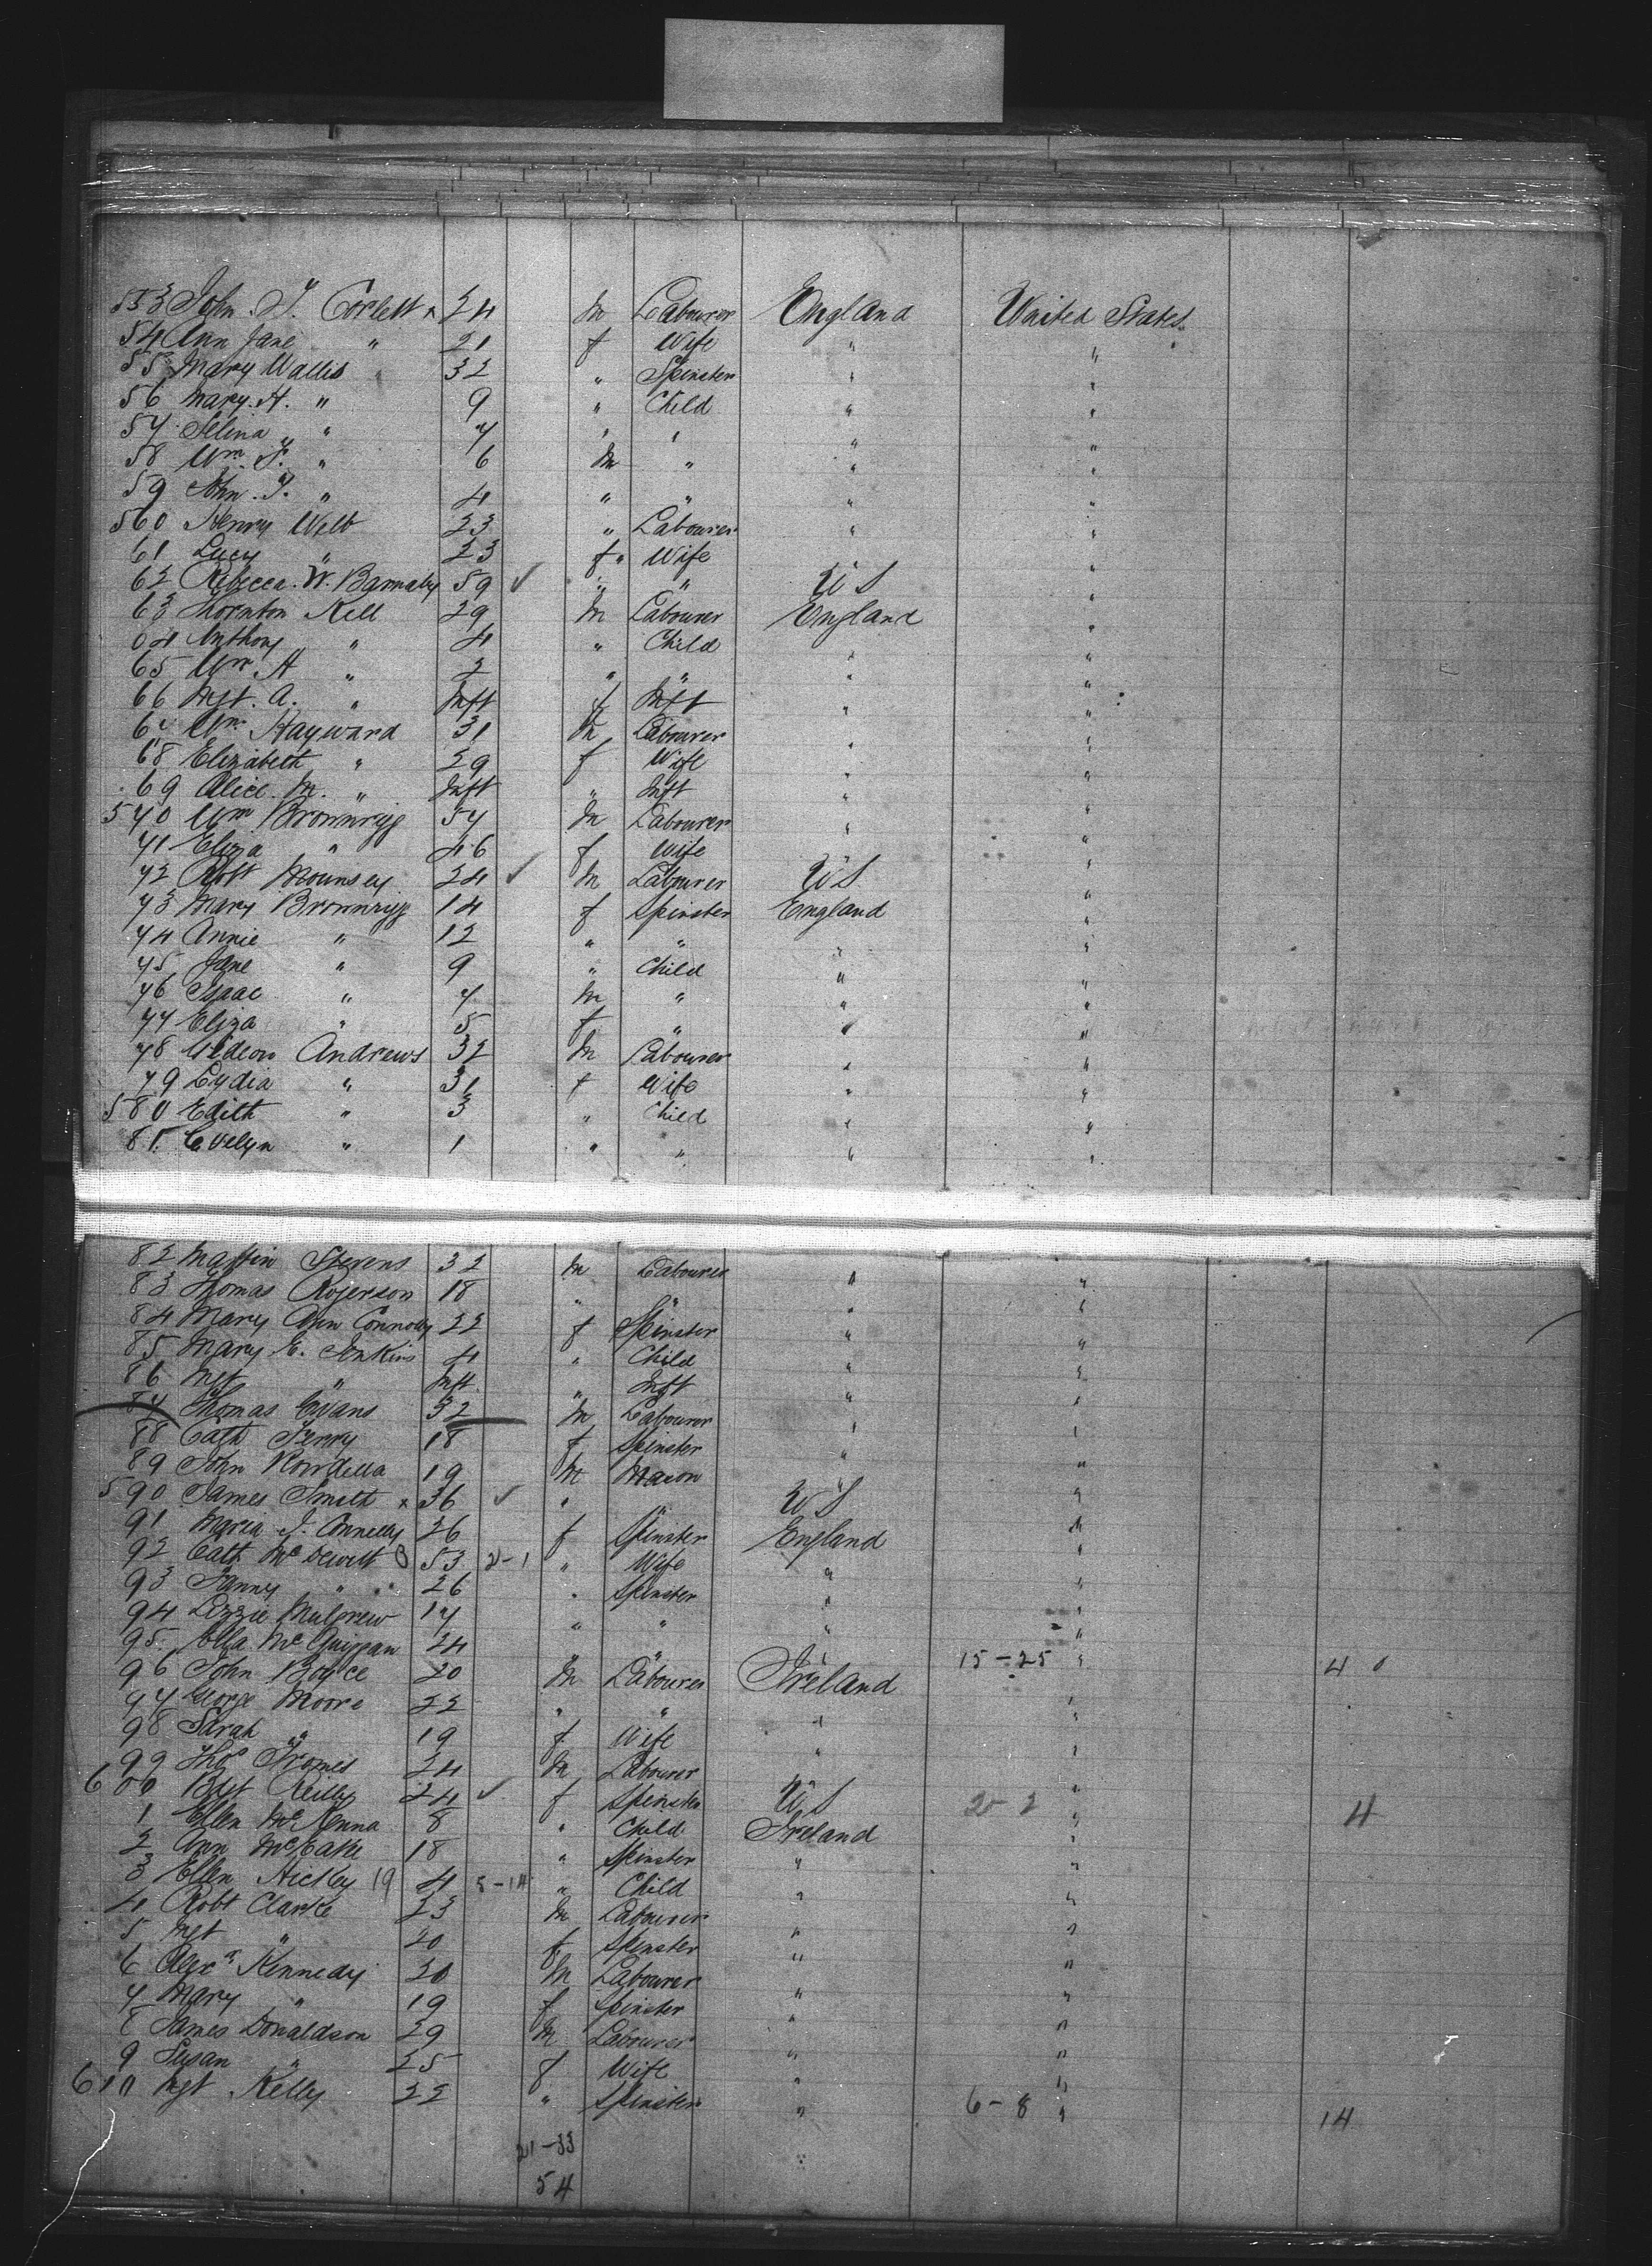 553 John. T. Corlett x 24 m Labourer England United States
54 Ann Jane " 21 f Wife " "
55 Mary Wallis 32 " Spinster " "
56 Mary. A. " 9 " Child " "
57 Selina " 7 " " " "
58 Wm. S. " 6 m " " "
59 John. T. " 4 " " " "
560 Henry Webb 23 " Labourer " "
61 Lucy " 23 f " Wife " "
62 Rebecca. W. Barnaby 59 ✓ " " U S "
63 Thornton Kell 29 m Labourer England "
64 Anthony " 4 " Child " "
65 Wm A " 2 " " " "
66 Mgt. A. " Inft f Inft " "
67 Wm. Hayward 31 m Labourer " "
68 Elizabeth " 29 f Wife " "
69 Alice. M. " Inft " Inft " "
570 Wm Brownrigg 57 m Labourer " "
71 Eliza " 46 f Wife " "
72 Robt Mounsey 24 ✓ m Labourer U S "
73 Mary Brownrigg 14 f Spinster England "
74 Annie " 12 " " " "
75 Jane " 9 " Child " "
76 Isaac " 7 m " " "
77 Eliza " 5 f " " "
78 Gideon Andrews 32 m Labourer " "
79 Lydia " 31 f Wife " "
580 Edith " 3 " Child " "
81 Evelyn " 1 " " " "
82 Martin Stevens 32 m Labourer " "
83 Thomas Rogerson 18 " " " "
84 Mary Ann Connolly 22 f Spinster " "
85 Mary E. Jenkins 4 " Child " "
86 Mgt " Inft. " Inft " "
87 Thomas Evans 32 m Labourer " "
88 Cath Terry 18 f Spinster " "
89 John Rowdella 19 m Mason " "
590 James Smith x 36 ✓ " " U S "
91 Maria J. Connelly 26 f Spinster England "
92 Cath McDevitt 53 2-1 " Wife " "
93 Fanny " 26 " Spinster " "
94 Lizzie Mulgrew 17 " " " "
95. Ella McGuiggan 24 " " " 15-25 "
96 John Boyce 20 m Labourer Ireland " 40
97 George Moore 22 " " " "
98 Sarah " 19 f Wife " "
99 Thos Fromes 24 m Labourer " "
600 Bgt Reilly 24 ✓ f Spinster U S 2-2 "
1 Ellen McKenna 8 " Child Ireland " 4
2 Ann McCake 18 " Spinster " "
3 Ellen Hickey 19 4 5-14 " Child " "
4 Robt Clarke 23 m Labourer " "
5 Mgt " 20 f Spinster " "
6 Alexr Kennedy 20 m Labourer " "
7 Mary " 19 f Spinster " "
8 James Donaldson 29 m Labourer " "
9 Susan " 25 f Wife " "
610 Mgt Kelly 22 " Spinster " 6-8 " 14
21-33
54